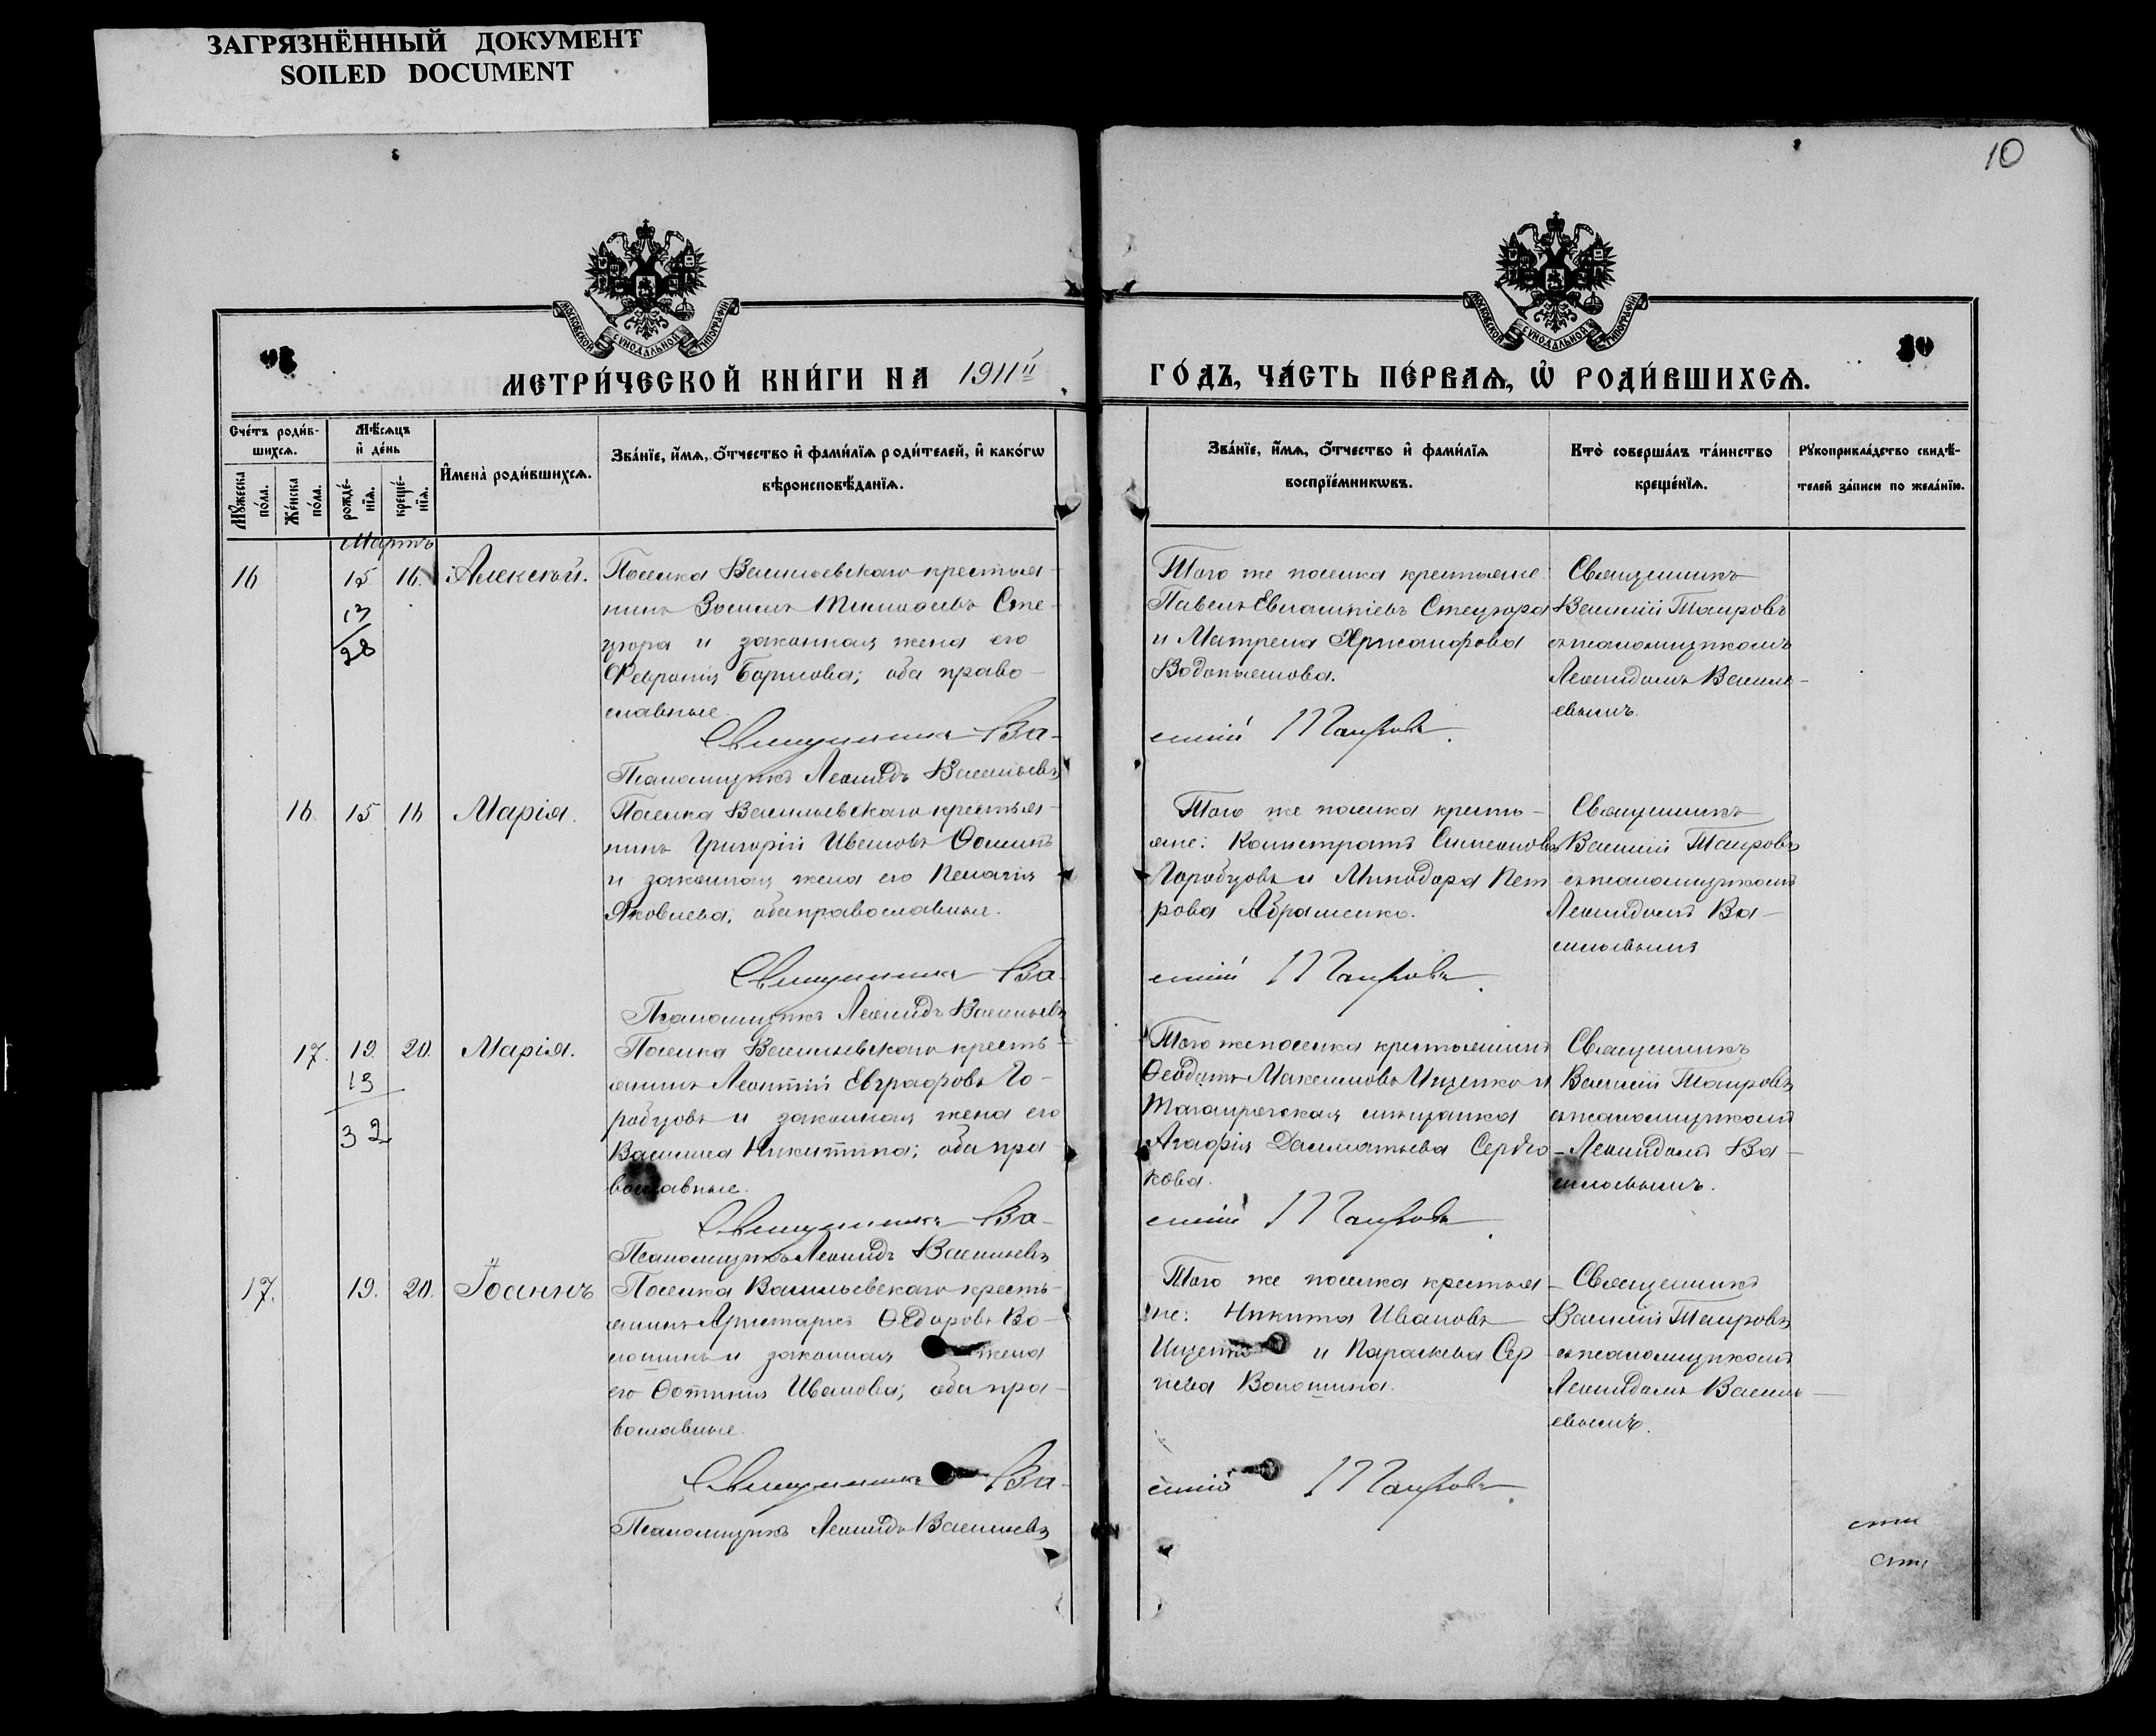 ЗАГРЯЗНЁННЫЙ ДОКУМЕНТ
SOILED DOCUMENT
10
МОСКОВСКОЙ СѴНОДАЛЬНОЙ ТИПОГРАФІИ
МОСКОВСКОЙ СѴНОДАЛЬНОЙ ТИПОГРАФІИ
МЕТРИ́ЧЕСКОЙ КНИ́ГИ НА 1911й
ГО́ДЪ, ЧА́СТЬ ПЕ́РВАѦ, Ѡ҆ РОДИ́ВШИХСѦ.
Сче́тъ роди́в-
шихсѧ.
Мꙋ́жеска по́ла.
Же́нска по́ла.
Мѣ́сѧцъ
и҆ де́нь
рожде́-нїѧ.
креще́-нїѧ.
И҆мена̀ роди́вшихсѧ.
Зва́нїе, и҆́мѧ, ѻ҆́тчество и҆ фами́лїѧ роди́телей, и҆ како́гѡ
вѣроисповѣ́данїѧ.
Зва́нїе, и҆́мѧ, ѻ҆́тчество и҆ фами́лїѧ
воспрїе́мникѡвъ.
Кто̀ соверша́лъ та́инство
креще́нїѧ.
Рꙋкоприкла́дство свидѣ́-
телей за́писи по жела́нїю.
Мартъ
16 15 16. Алексѣй.
13
28
Поселка Васильевскаго крестья-
нинъ
Сте-
цюра и законная жена его
Февронія Борисова; оба право-
славные.
Священникъ Ва-
Псаломщикъ Леонидъ Васильевъ
Того же поселка крестьяне:
Павелъ Евлампіевъ Стецюра
и Матрена Хрисанфова
Водопьянова.
силій Таировъ.
Священникъ
Василій Таировъ
съ псаломщикомъ
Леонидомъ Василь-
евымъ.
16. 15 16 Марія.
Поселка Васильевскаго крестья-
нинъ Григорій Ивановъ Ѳоминъ
и законная жена его Пелагія
Яковлева; оба православные.
Священникъ Ва-
Псаломщикъ Леонидъ Васильевъ
Того же поселка кресть-
яне: Каллистратъ Симеоновъ
Горобцовъ и Минодора Пет
рова Абраменко.
силій Таировъ.
Священникъ
Василій Таировъ
съ псаломщикомъ
Леонидомъ Ва-
сильевымъ
17. 19. 20. Марія.
13
32
Поселка Васильевскаго кресть-
янинъ Леонтій Евграфовъ Го-
робцовъ и законная жена его
Василиса Никитина; оба пра
вославные.
Священникъ Ва-
Псаломщикъ Леонидъ Васильевъ
Того же поселка крестьянинъ
Ѳеодотъ Максимовъ Ищенко и
Таганрогская мѣщанка
Агафія Далматьева Сердю-
кова.
силій Таировъ.
Священникъ
Василій Таировъ
съ псаломщикомъ
Леонидомъ Ва-
сильевымъ.
17. 19. 20. Іоаннъ
Поселка Васильевскаго кресть-
янинъ Аристархъ Ѳедоровъ Во-
лошинъ и законная жена
его Фотинія Иванова; оба пра-
вославные.
Священникъ Ва-
Псаломщикъ Леонидъ Васильевъ
Того же поселка крестья-
не: Никита Ивановъ
Ищенко и Параскева Сер
гіева Волошина.
силій Таировъ.
Священникъ
Василій Таировъ
съ псаломщикомъ
Леонидомъ Василь-
евымъ.